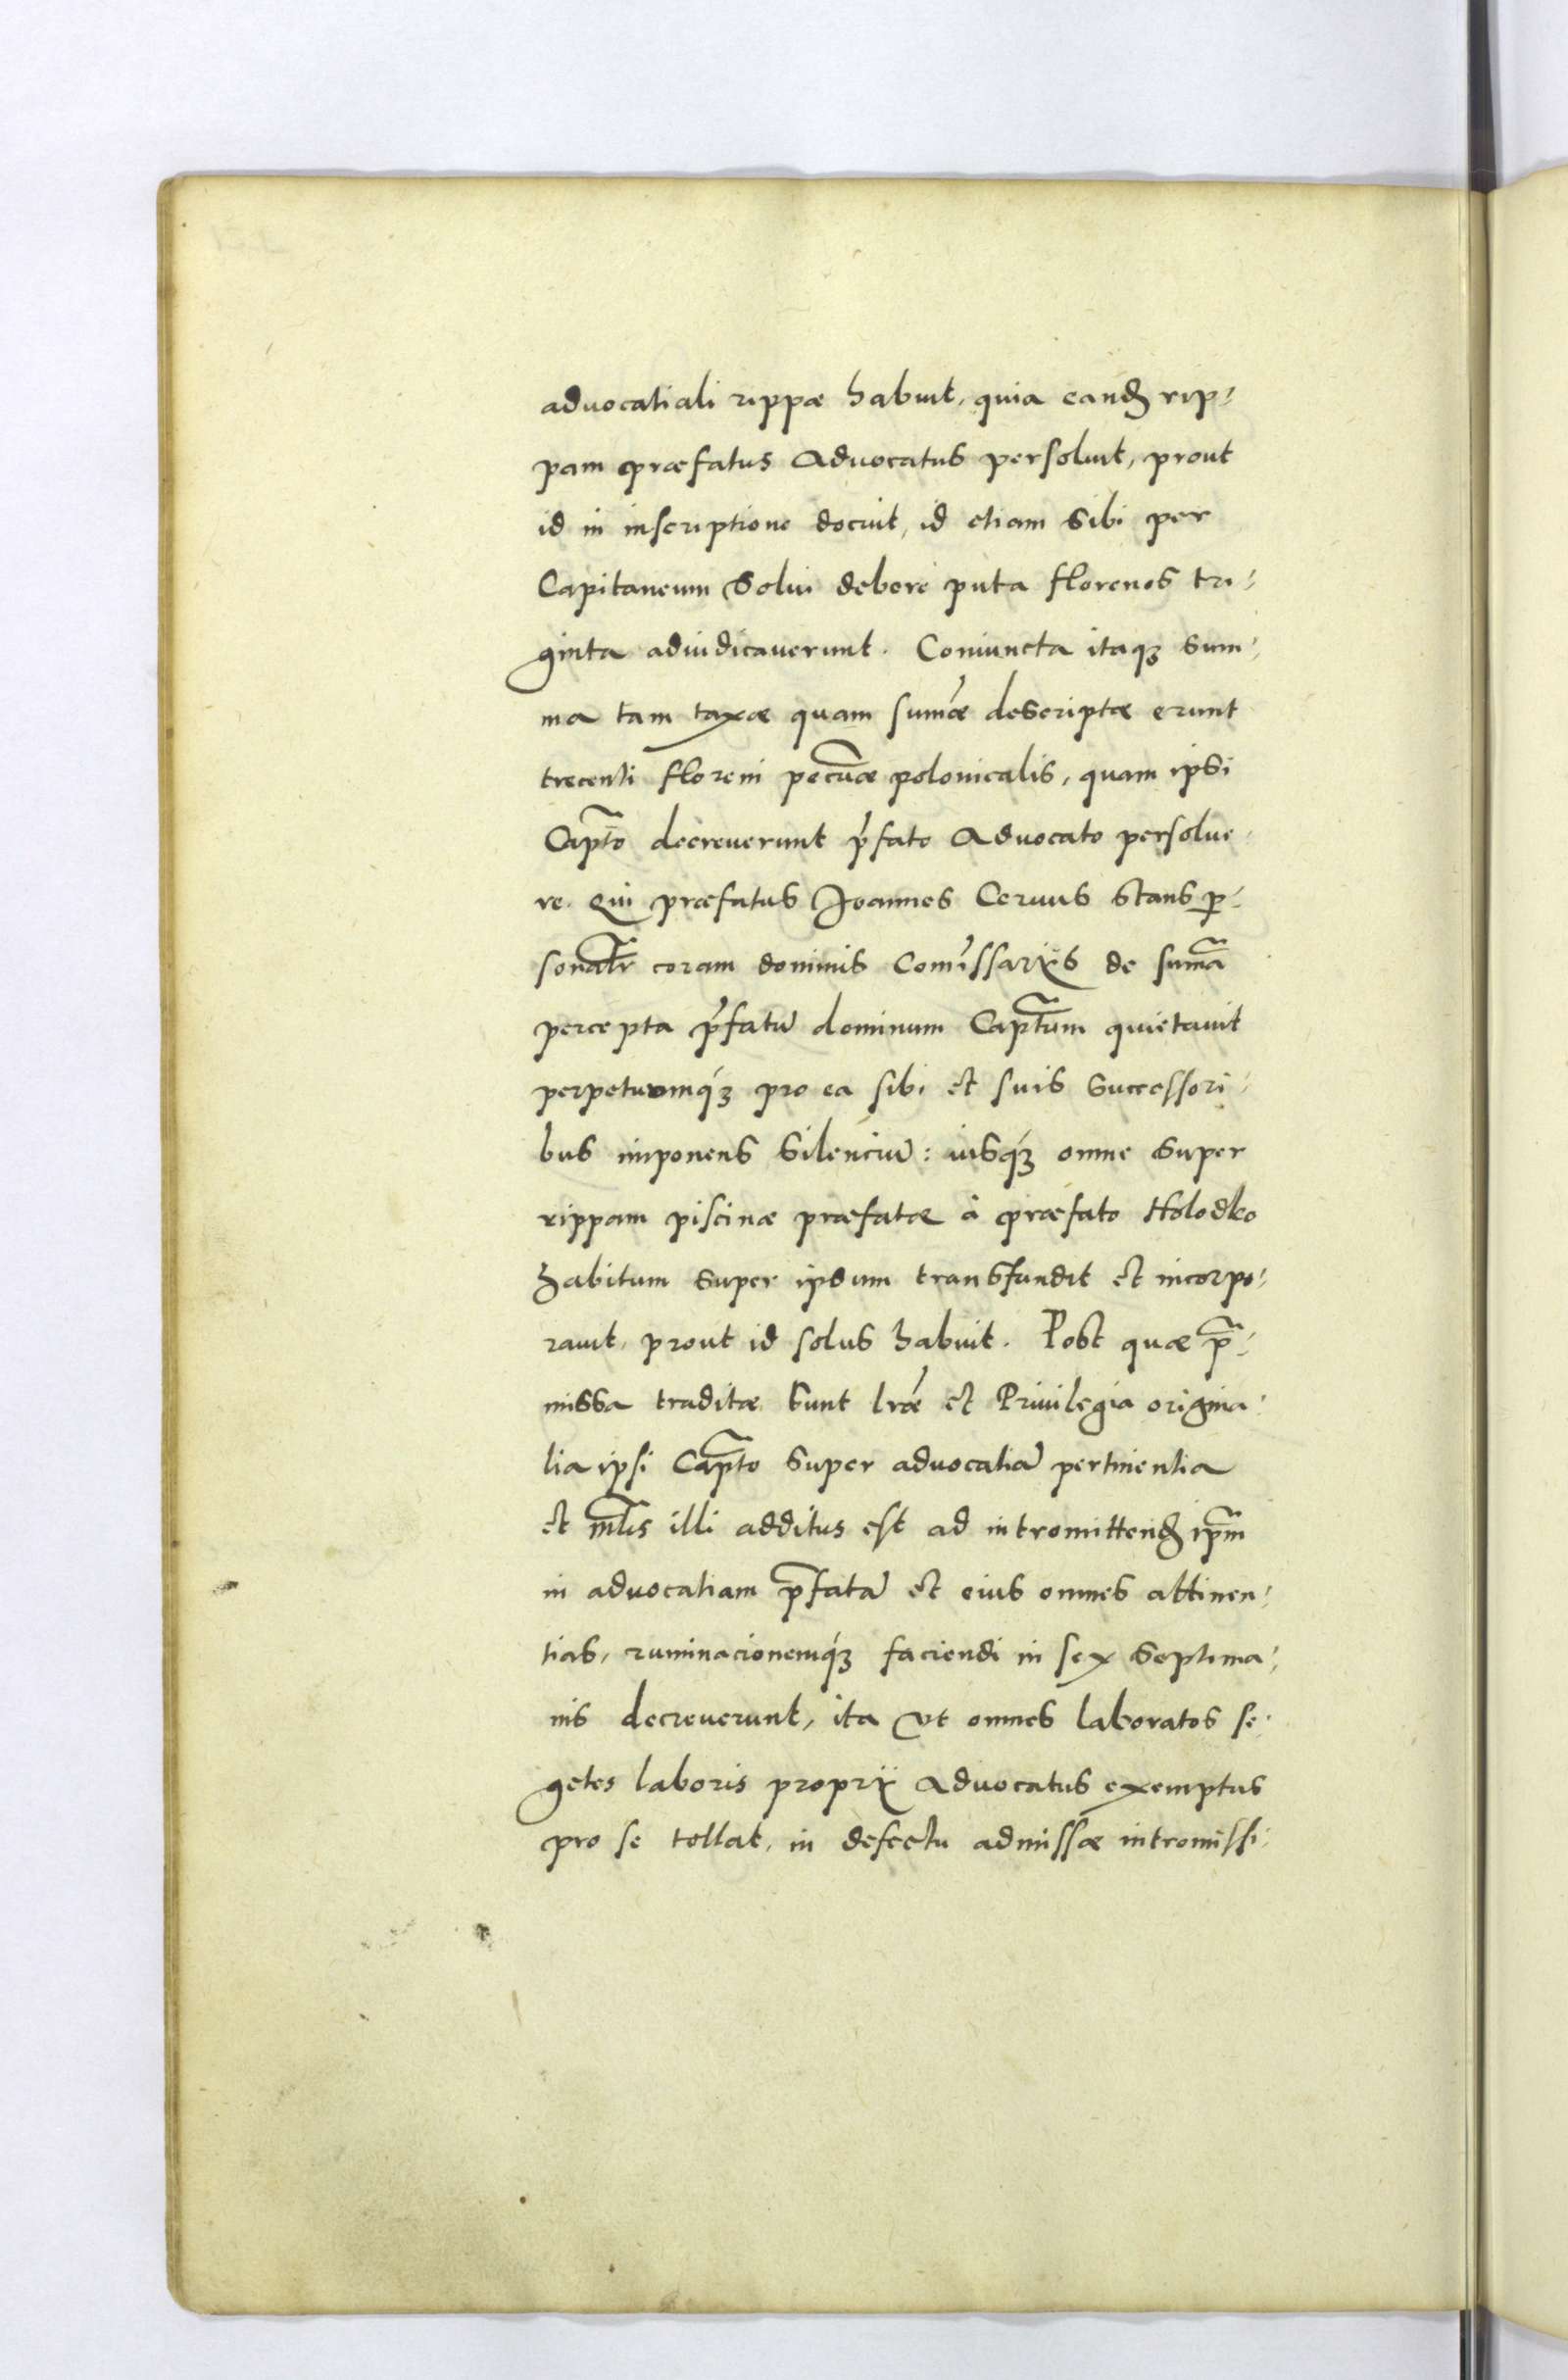 advocatiali rippæ habuit, quia eandꝫ rip-
pam præfatus Advocatus persoluit, prout
id in inscriptione docuit, id etiam sibi per
Capitaneum solui debere puta florenos tri-
ginta adiudicauerunt. Coniuncta itaqꝫ sum-
ma tam taxæ quam sum̃æ descriptæ erunt
trecenti floreni pecũæ polonicalis, quam ipsi
Capt̃o decreuerunt p̃fato Advocato persolue-
re. Qui præfatus Joannes Ceruus stans ꝑ-
sonalr̃ coram dominis Com̃issarijs de sum̃a
percepta p̃fatũ dominum Capt̃um quietauit
perpetuumqꝫ pro ea sibi et suis successori-
bus imponens silenciũ: iusqꝫ omne super
rippam piscinæ præfatæ à præfato Holodko
habitum super ipsum transfundit et incorpo-
rauit, prout id solus habuit. Post quæ p̃-
missa traditæ sunt lr̃æ et Priuilegia origina-
lia ipsi Capt̃o super advocatiã pertinentia
et ml̃is illi additus est ad intromittendꝫ ip̃m
in advocatiam p̃fatã et eius omnes attinen-
tias, ruminacionemqꝫ faciendi in sex septima-
nis decreuerunt, ita vt omnes laboratos se-
getes laboris proprij Advocatus exemptus
pro se tollat, in defectu admissæ intromissi-